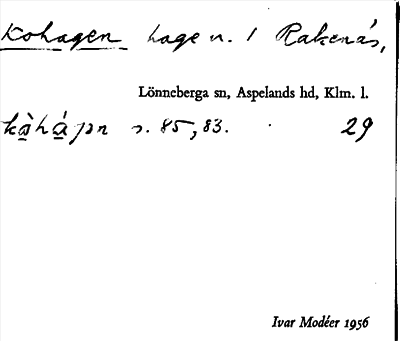 Kohagen hage n. 1 Rakenäs,
Lönneberga sn, Aspelands hd, Klm. l.
kòhágən s. 85, 83. 29
Ivar Modéer 1956